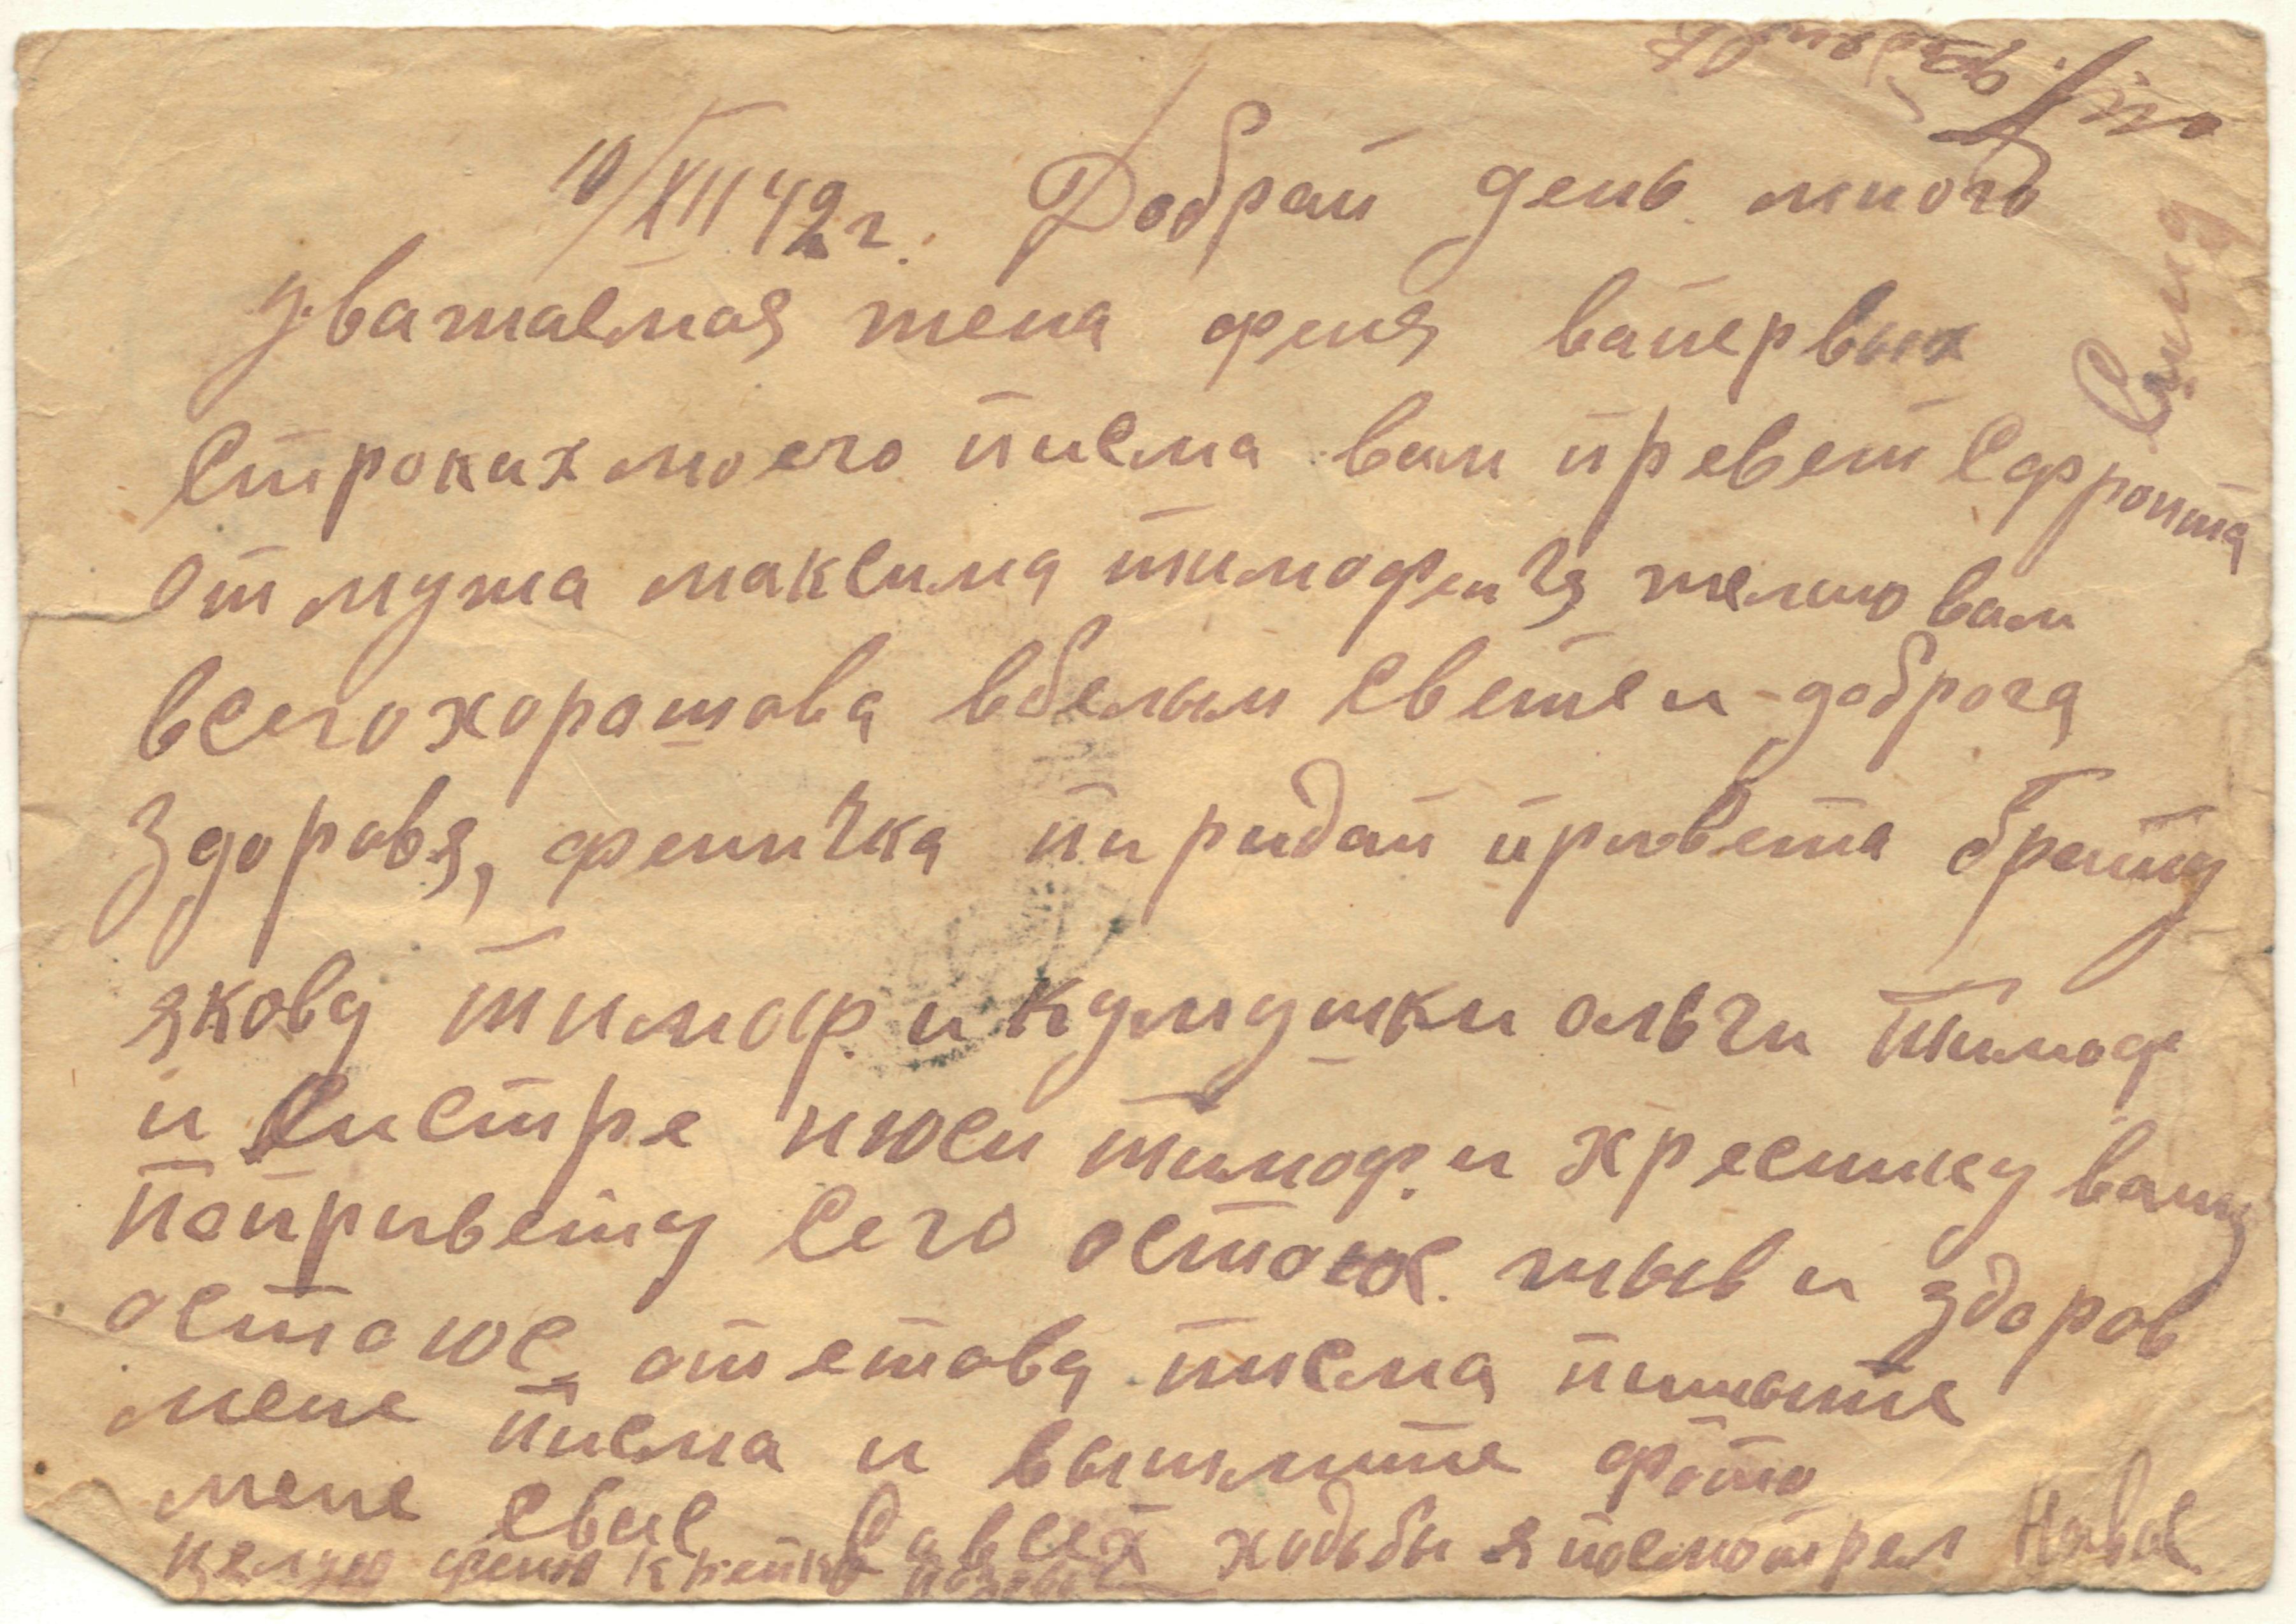 10/XII 42г. Добрай день много
уважаемая жена феня вапервых
строках моего писма вам превет сфронта
от мужа максима тимофеича желаю вам
всего хорашова вбелым свете и доброга
здоровя, феничка пиридай привета брату
якову тимоф. и кумушки ольги тимоф
и систре нюси тимоф. и хреснику вашу
попривету сего остаюс. жыв и здоров
остаюс, отетова писма пишыте
мене писма и вышлите фото
мене свие Савсех ходьбы я посмотрел
целую феню крепко